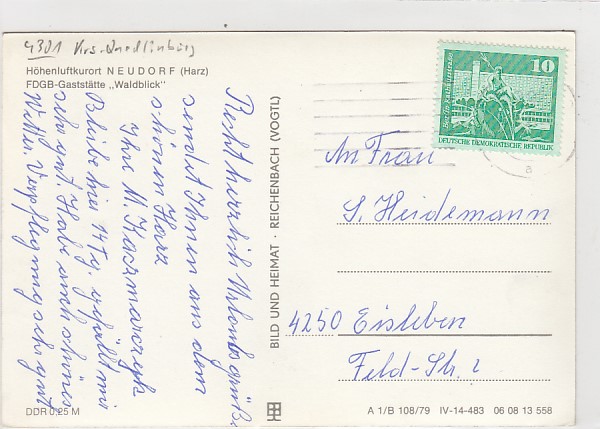 4301 Krs. Quedlinburg
Höhenluftkurort NEUDORF (Harz)
FDGB-Gaststätte „Waldblick"
Recht herzliche Urlaubsgrüße
sendet Ihnen aus dem
schönen Harz
Ihre M. Kaczmarczyk
Bleibe hier 14 Tg. gefällt mir
sehr gut. Habe auch schönes
Wetter. Verpflegung sehr gut
DDR 0,25 M
BILD UND HEIMAT · REICHENBACH (VOGTL)
10
DEUTSCHE DEMOKRATISCHE REPUBLIK
An Frau
S. Heidemann
4250 Eisleben
Feld-Str. 2
A 1/B 108/79 IV-14-483 06 08 13 558